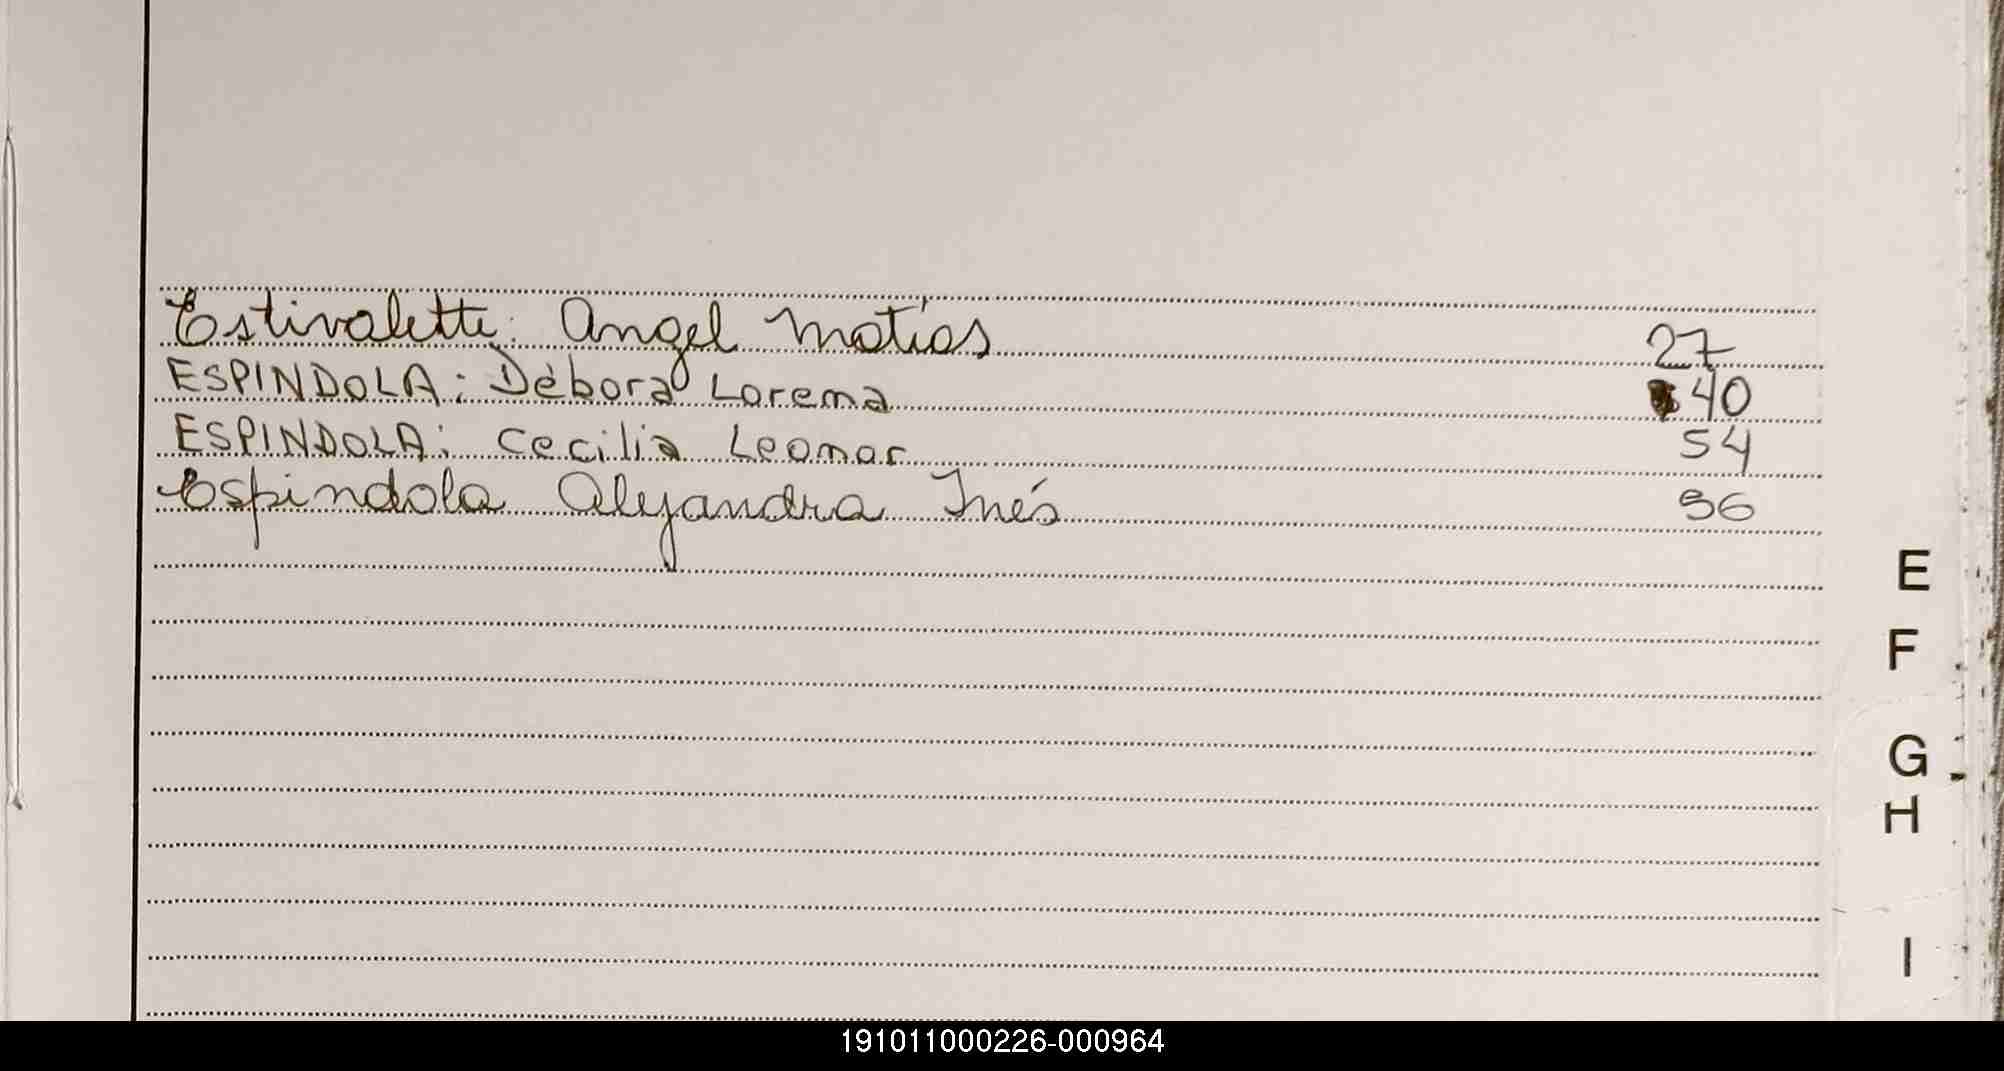 Estivalette: Angel Matías 27
ESPINDOLA: Débora Lorena 40
ESPINDOLA: Cecilia Leonor 54
Espindola Alejandra Inés 96
E
F
G
H
I
191011000226-000964